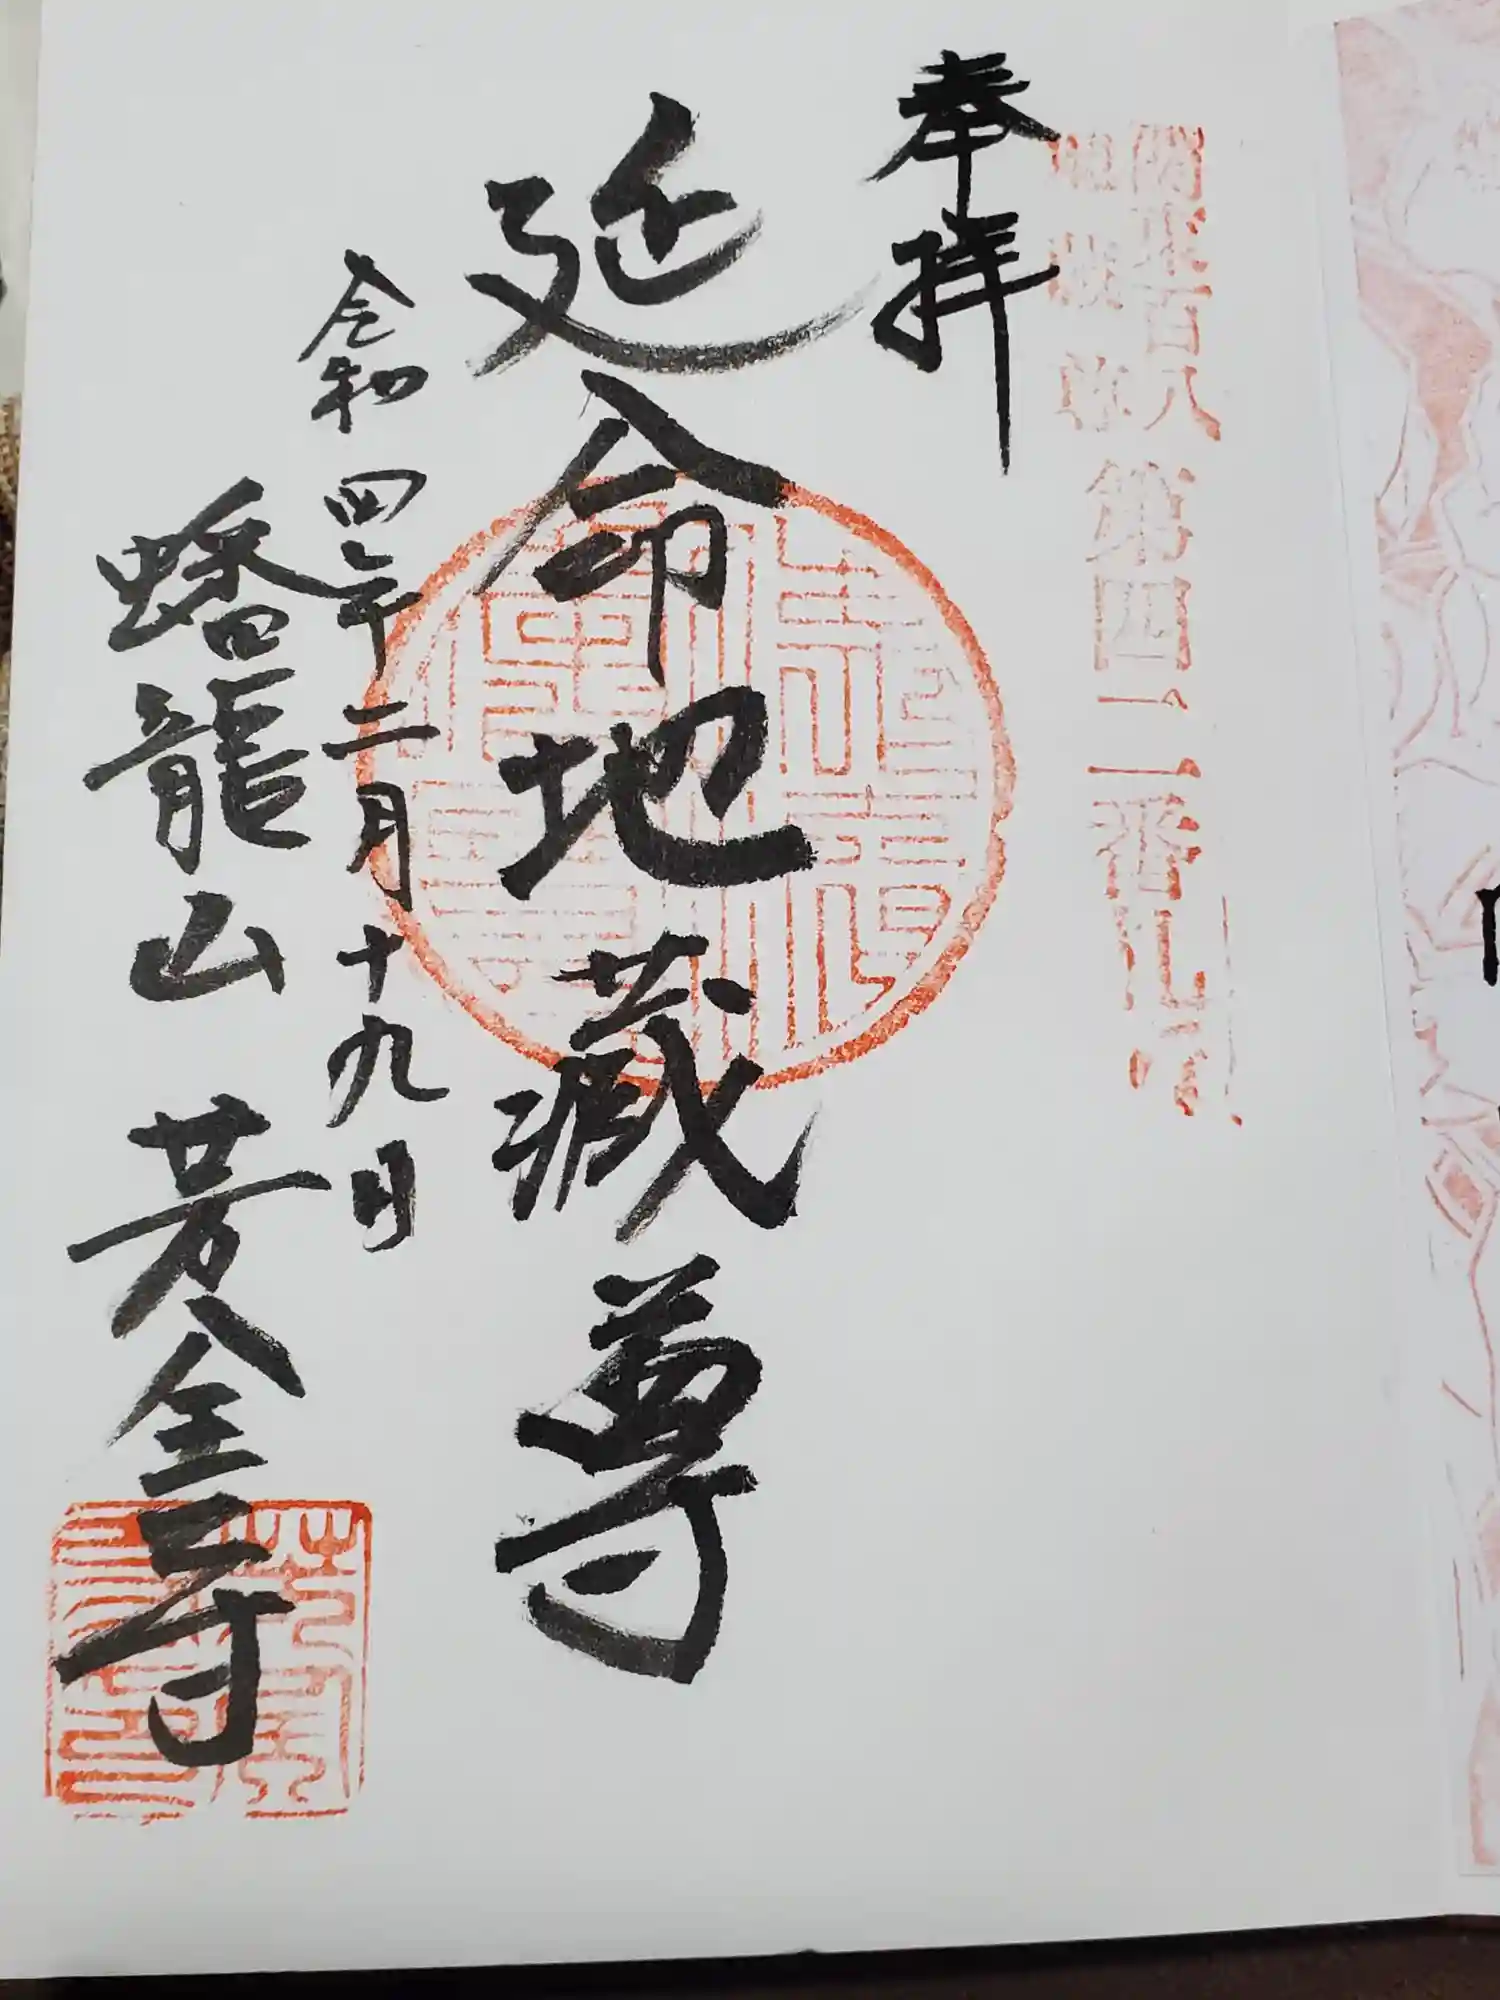 関東百八
地蔵尊
第四二番札所
奉拝
延命地蔵尊
令和四年二月十九日
蟠龍山 芳全寺